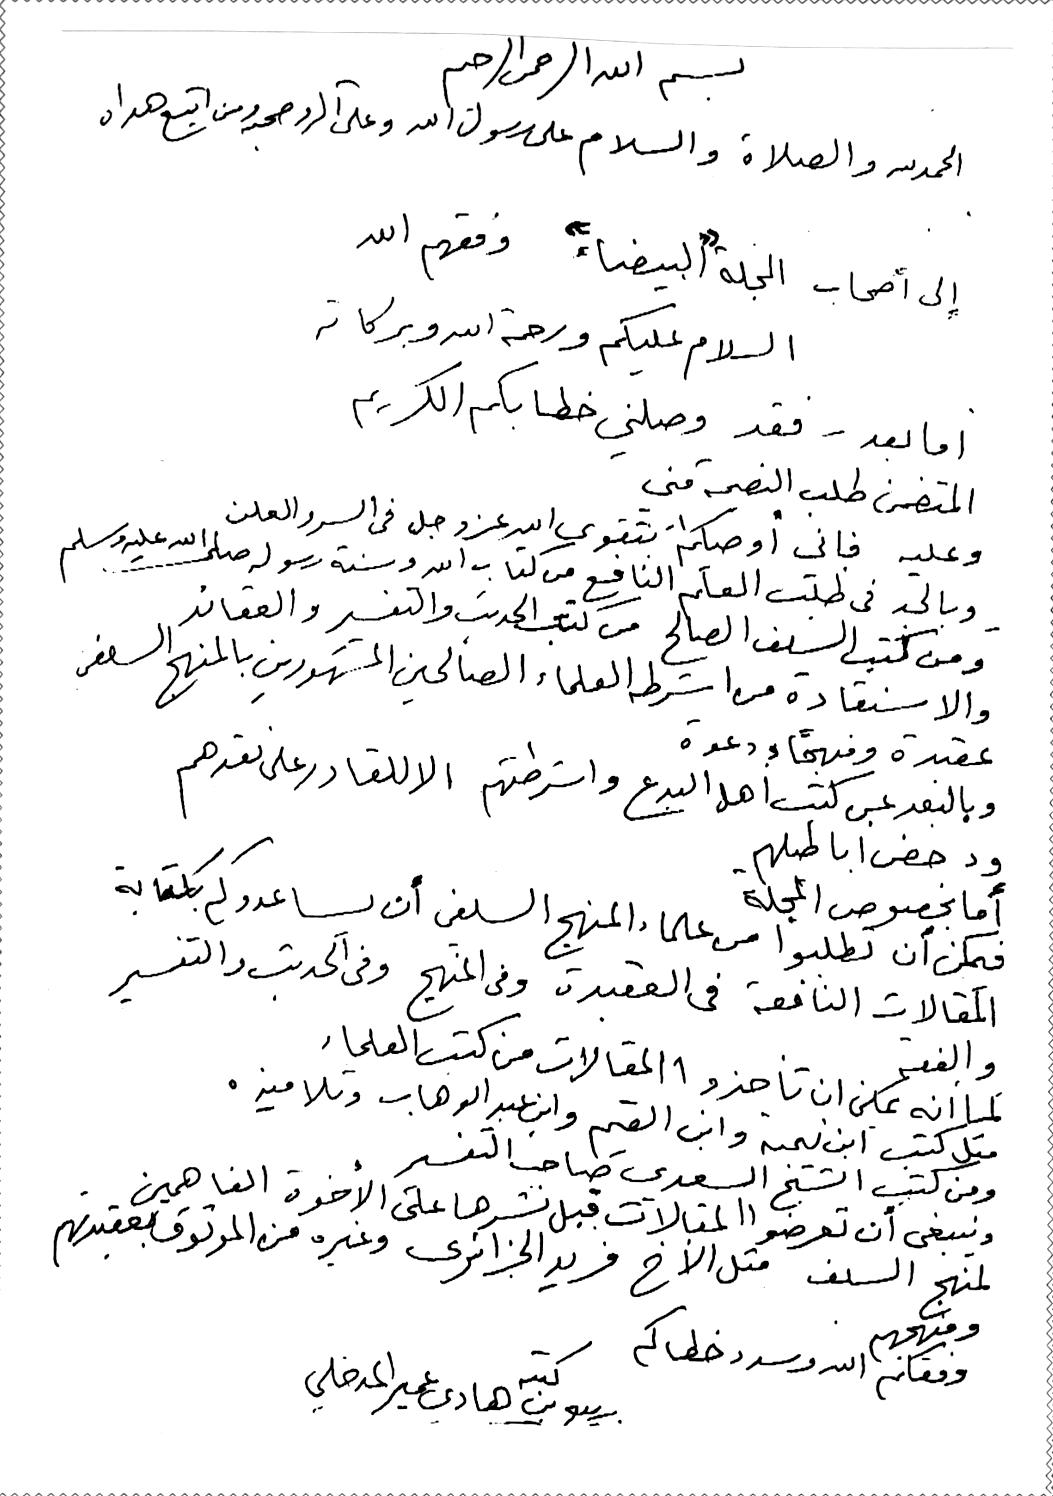 بسم الله الرحمن الرحيم
الحمد لله والصلاة والسلام على رسول الله وعلى آله وصحبه ومن اتبع هداه
إلى أصحاب المجلة "البيضاء" وفقهم الله
السلام عليكم ورحمة الله وبركاته
أما بعد - فقد وصلني خطابكم الكريم
المتضمن طلب النصيحة مني
وعليه فإني أوصيكم بتقوى الله عز وجل في السر والعلن
وبالجد في طلب العلم النافع من كتاب الله وسنة رسوله صلى الله عليه وسلم
ومن كتب السلف الصالح من كتب الحديث والتفسير والعقائد
والاستفادة من أشرطة العلماء الصالحين المشهورين بالمنهج السلفي
عقيدة ومنهجًا ودعوة
وبالبعد عن كتب أهل البدع وأشرطتهم إلا للقادر على نقدهم
ودحض أباطيلهم
أما بخصوص المجلة
فيمكن أن تطلبوا من علماء المنهج السلفي أن يساعدوكم بكتابة
المقالات النافعة في العقيدة وفي المنهج وفي الحديث والتفسير
والفقه
كما أنه يمكن أن تأخذوا المقالات من كتب العلماء
مثل كتب ابن تيمية وابن القيم وابن عبد الوهاب وتلاميذه
ومن كتب الشيخ السعدي صاحب التفسير
وينبغي أن تعرضوا المقالات قبل نشرها على الأخوة الفاهمين
لمنهج السلف مثل الأخ فريد الجزائري وغيره من الموثوق بعقيدتهم
ومنهجهم
وفقكم الله وسدد خطاكم
كتبه
ربيع بن هادي عمير المدخلي